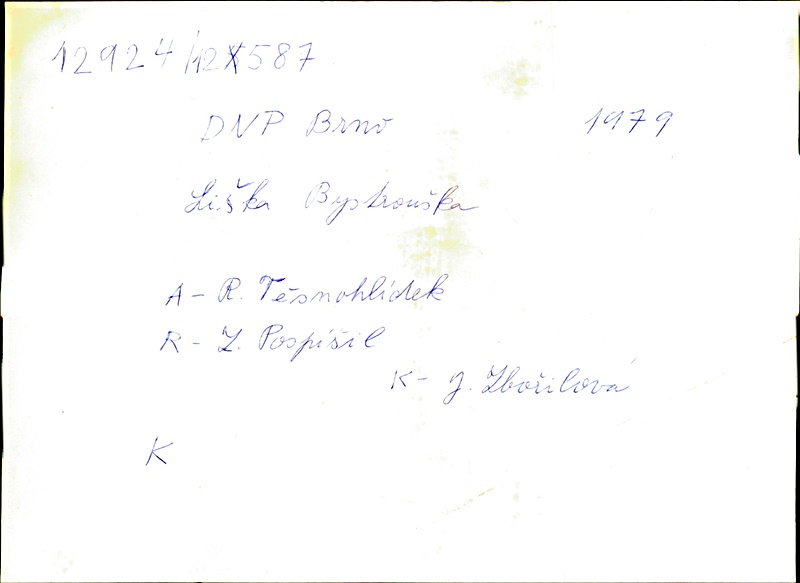 12924/12X587
DVP Brno 1979
Liška Bystrouška
A - R. Těsnohlídek
R - Z. Pospíšil
K - J. Zbořilová
K